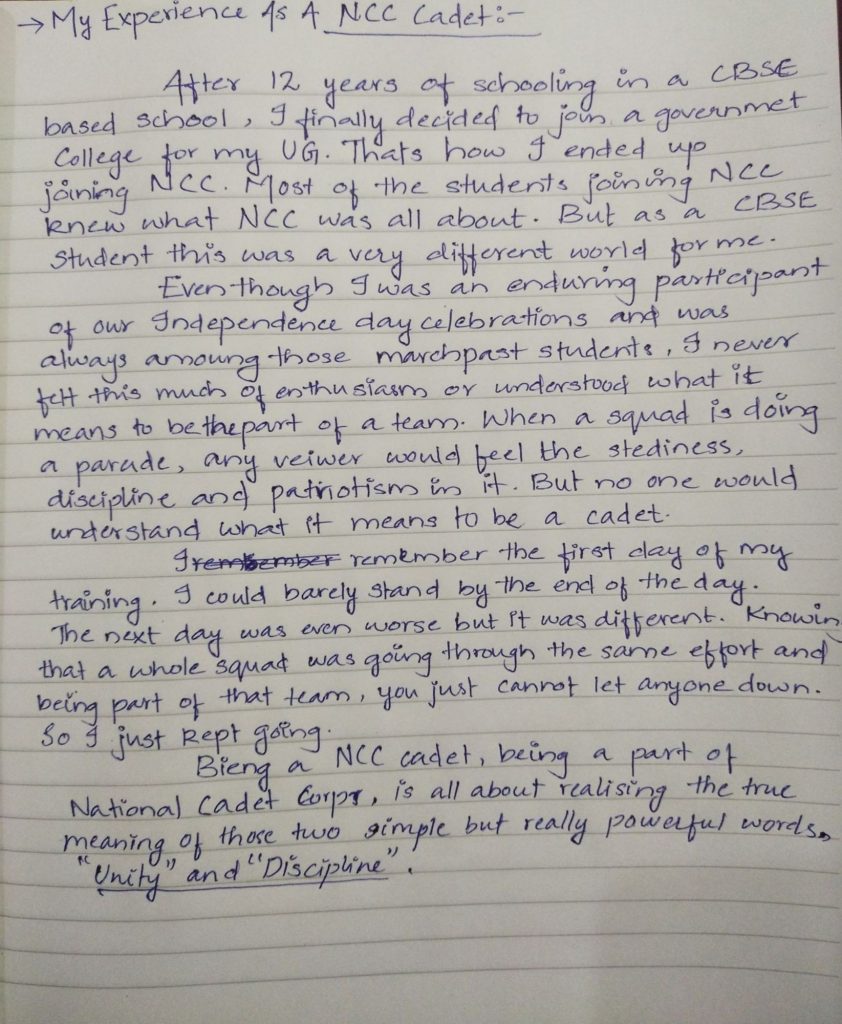 → My Experience As A NCC Cadet:-
After 12 years of schooling in a CBSE
based school, I finally decided to join a governmet
College for my UG. Thats how I ended up
joining NCC. Most of the students joining NCC
knew what NCC was all about. But as a CBSE
student this was a very different world for me.
Even though I was an enduring participant
of our Independence day celebrations and was
always amoung those marchpast students, I never
felt this much of enthusiasm or understood what it
means to be the part of a team. When a squad is doing
a parade, any veiwer would feel the stediness,
discipline and patriotism in it. But no one would
understand what it means to be a cadet.
I remember the first day of my
training. I could barely stand by the end of the day.
The next day was even worse but it was different. Knowin
that a whole squad was going through the same effort and
being part of that team, you just cannot let anyone down.
So I just kept going.
Bieng a NCC cadet, being a part of
National Cadet Corps, is all about realising the true
meaning of those two simple but really powerful words,
"Unity" and "Discipline".